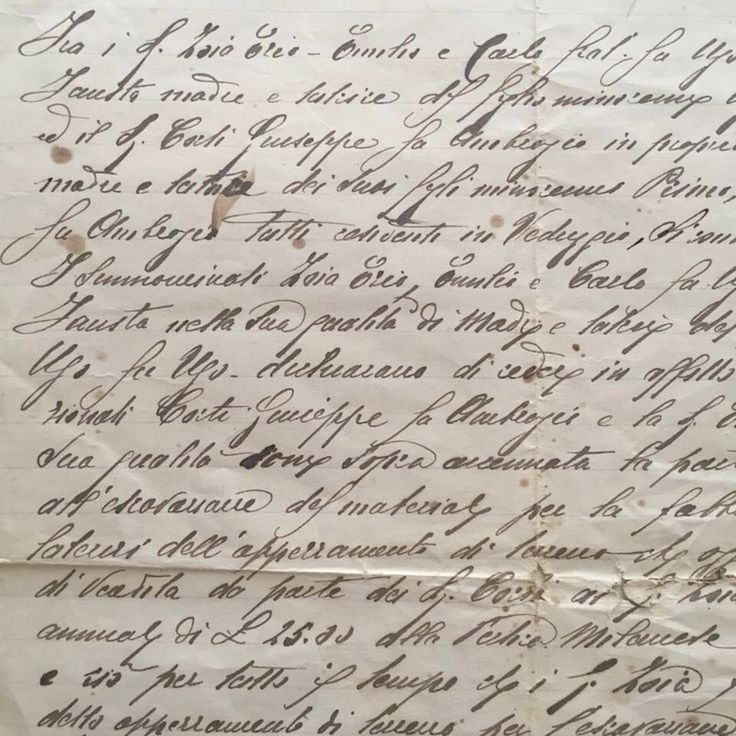 Tra i S. Zoia Ezio - Emilio e Carlo frat. fu Ugo
Fausta madre e tutrice del figlio minorenne
ed il S. Corti Giuseppe fu Ambrogio in proprio
madre e tutrice dei suoi figli minorenni Primo,
fu Ambrogio tutti residenti in Veduggio, si con
I summominati Zoia Ezio, Emilio e Carlo fu Ug
Fausta nella sua qualità di Madre e tutrice del
Ugo fu Ugo - dichiarano di cedere in affitto
zionati Corti Giuseppe fu Ambrogio e la S.
sua qualità come sopra accennata la parte
all'escavazione del materiale per la fabb
laterizi dell'apperzamento di terreno che
di vendita da parte dei S. Corti ai S. Zoia
annuale di £ 25.00 alla Pertica Milanese
e ciò per tutto il tempo che i S. Zoia
detto apperzamento di terreno per l'escavazione